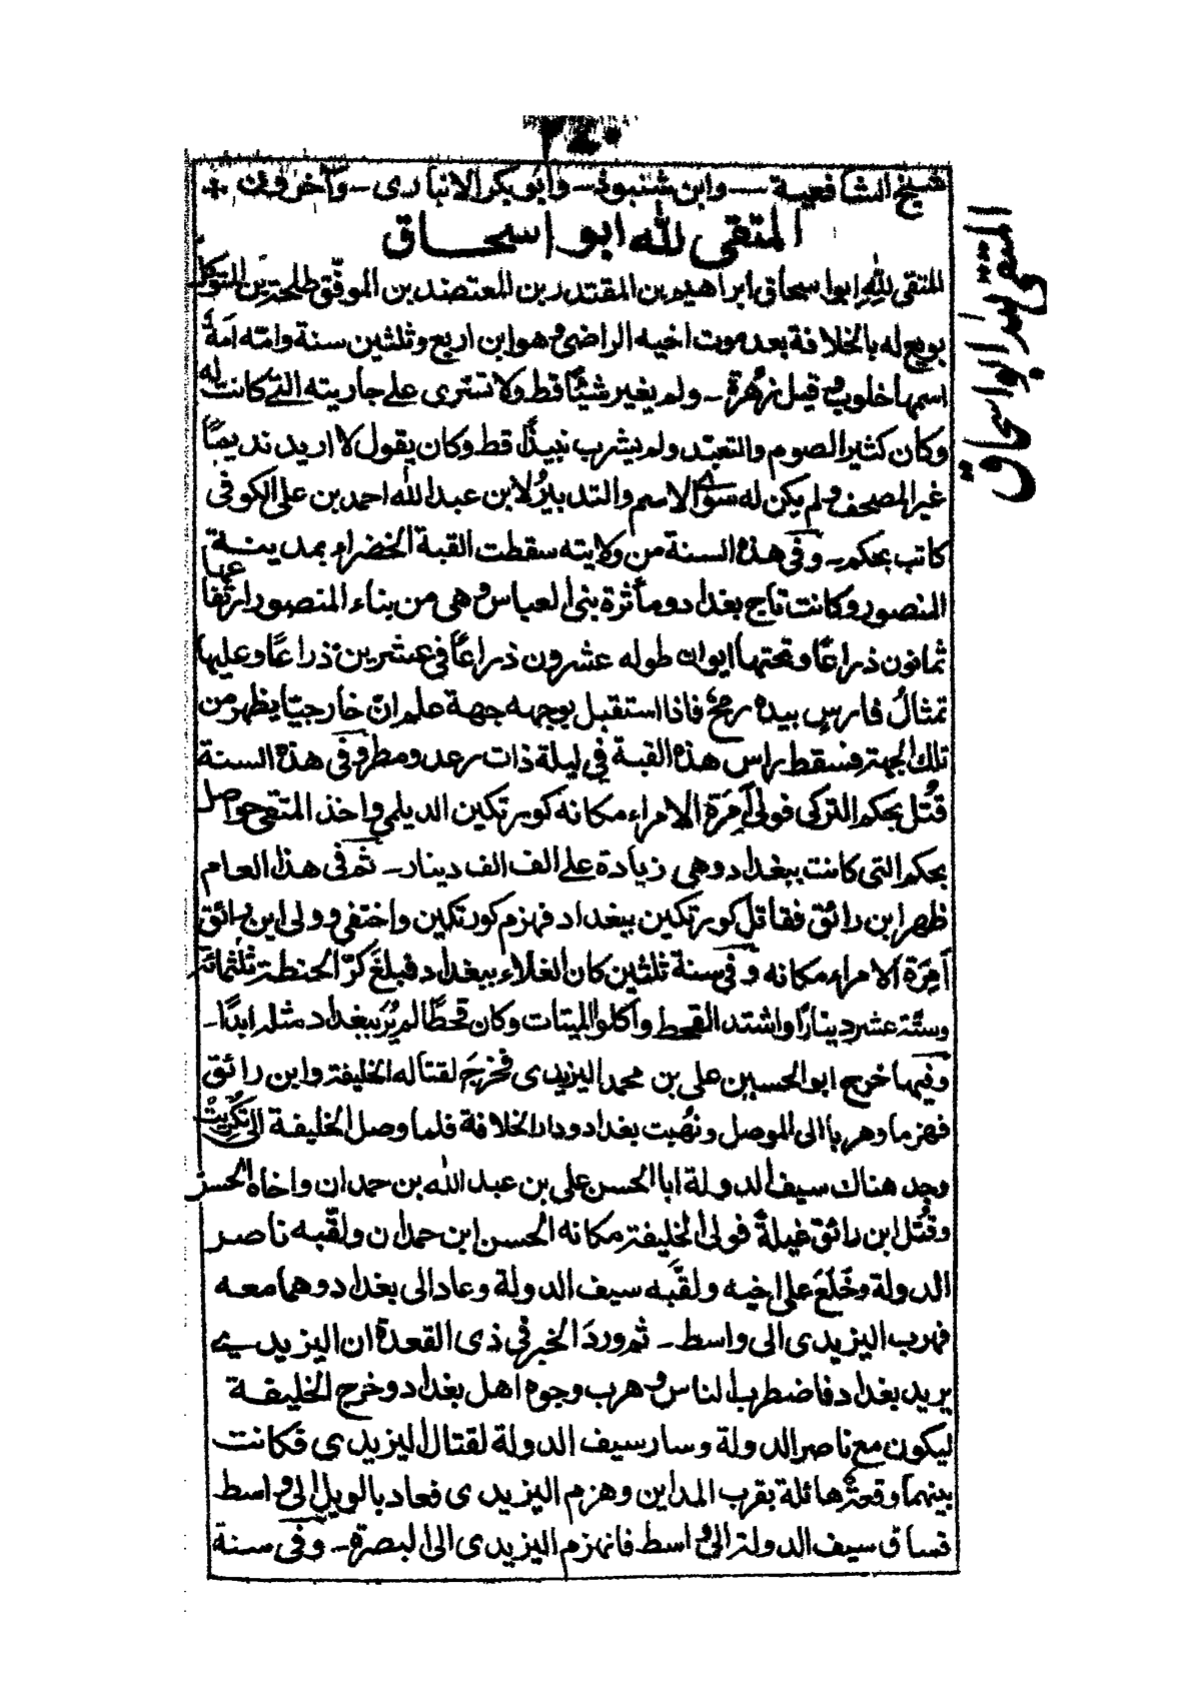 شيخ الشافعية — وابن شنبوذ — وابو بكر الانبارى — وآخرون +
المتقى لله ابو اسحاق
المتقى لله ابو اسحاق
المتقى لله ابو اسحاق ابراهيم بن المقتدر بن المعتضد بن الموفق طلحة بن المتوكل
بويع له بالخلافة بعد موت اخيه الراضى وهو ابن اربع وثلثين سنة وامّه امة
اسمها خلوب وقيل زهرة - ولم يغير شيئًا قط ولا تسرى على جاريته التى كانت له
وكان كثير الصوم والتعبّد ولم يشرب نبيذًا قط وكان يقول لا اريد نديمًا
غير المصحف ولم يكن له سوى الاسم والتدبيرُ لابن عبد الله احمد بن على الكوفى
كاتب بجكم - وفى هذه السنة من ولايته سقطت القبة الخضراء بمدينة
المنصور وكانت تاج بغداد ومأثرة بنى العباس وهى من بناء المنصور ارتفاعها
ثمانون ذراعًا وتحتها ايوان طوله عشرون ذراعًا فى عشرين ذراعًا وعليها
تمثالُ فارسٍ بيده رمحٌ فاذا استقبل بوجهه جهة علم انّ خارجيّا يظهر من
تلك الجهة فسقط راس هذه القبة فى ليلة ذات رعد ومطر وفى هذه السنة
قُتل بجكم التركى فولى اَمِرَة الامراء مكانه كورتكين الديلمى واخذ المتقى حواصل
بجكم التى كانت ببغداد وهى زيادة على الف الف دينار - ثم فى هذا العام
ظهر ابن رائق فقاتل كورتكين ببغداد فهزم كورتكين واختفى وولى ابن رائق
اَمِرَة الامراء مكانه وفى سنة ثلثين كان الغلاء ببغداد فبلغ كرّ الحنطة ثلثمائة
وستّة عشر دينارًا واشتد القحط واكلوا الميتات وكان قحطًا لم يُرَ ببغداد مثله ابدًا -
وفيها خرج ابو الحسين على بن محمد اليزيدى فخرجَ لقتاله الخليفة وابن رائق
فهزما وهربا الى الموصل ونُهبت بغداد ودار الخلافة فلما وصل الخليفة الى تكريت
وجد هناك سيف الدولة ابا الحسن على بن عبد الله بن حمدان واخاه الحسن
وقُتل ابن رائق غيلةً فولى الخليفة مكانه الحسن ابن حمدان ولقّبه ناصر
الدولة وخَلَعَ على اخيه ولقّبه سيف الدولة وعاد الى بغداد وهما معه
فهرب اليزيدى الى واسط - ثم وردَ الخبر فى ذى القعدة ان اليزيدى
يريد بغداد فاضطرب الناس وهرب وجوه اهل بغداد وخرج الخليفة
ليكون مع ناصر الدولة وسار سيف الدولة لقتال اليزيدى فكانت
بينهما وقعةٌ هائلة بقرب المداين وهزم اليزيدى فعاد بالويل الى واسط
فساق سيف الدولة الى واسط فانهزم اليزيدى الى البصرة - وفى سنة